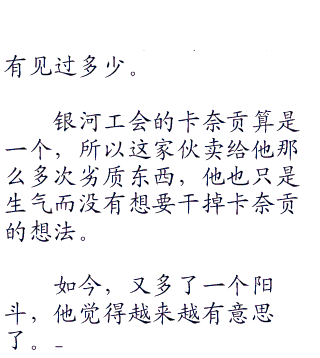 有见过多少。
银河工会的卡奈贡算是
一个，所以这家伙卖给他那
么多次劣质东西，他也只是
生气而没有想要干掉卡奈贡
的想法。
如今，又多了一个阳
斗，他觉得越来越有意思
了。